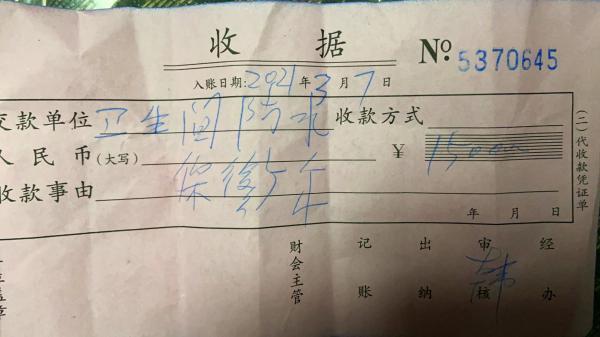 收据
No 5370645
入账日期:2021年3月7日
交款单位 卫生间防水 收款方式
人民币(大写) ¥ 1500
收款事由 保修5年
年 月 日
(二)代收款凭证单
财会主管 记账 出纳 审核 经办